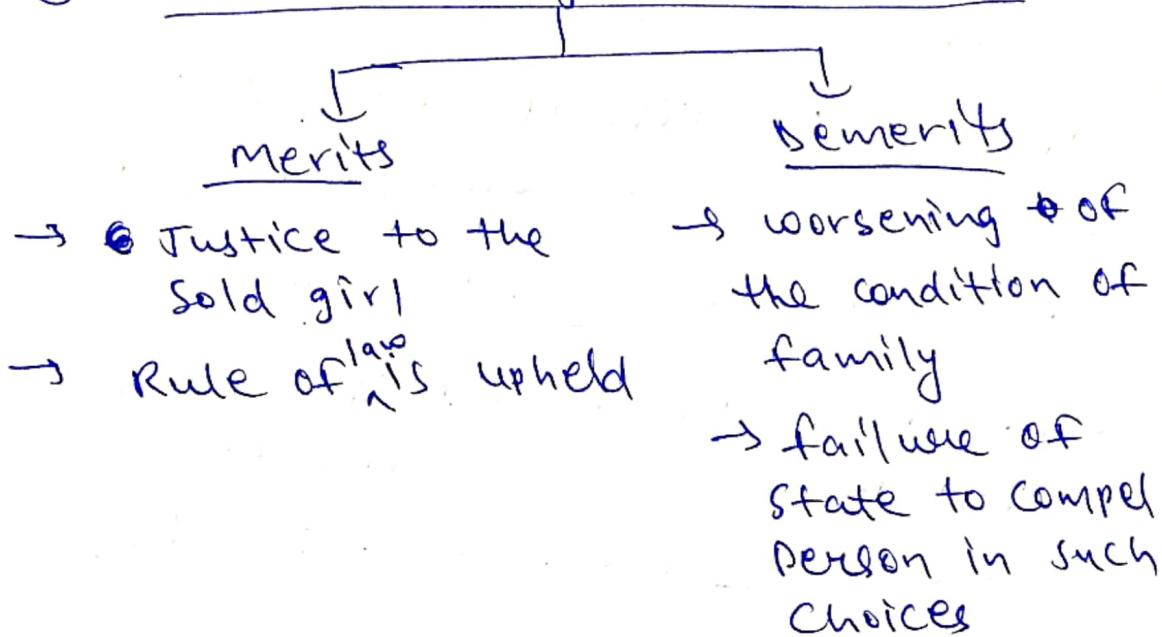 Merits
→ Justice to the
Sold girl
→ Rule of law is upheld
Demerits
→ worsening of
the condition of
family
→ failure of
State to compel
Person in such
Choices